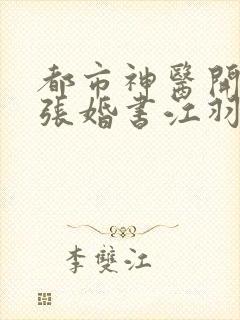 都市神醫開
張婚書江羽
李雙江